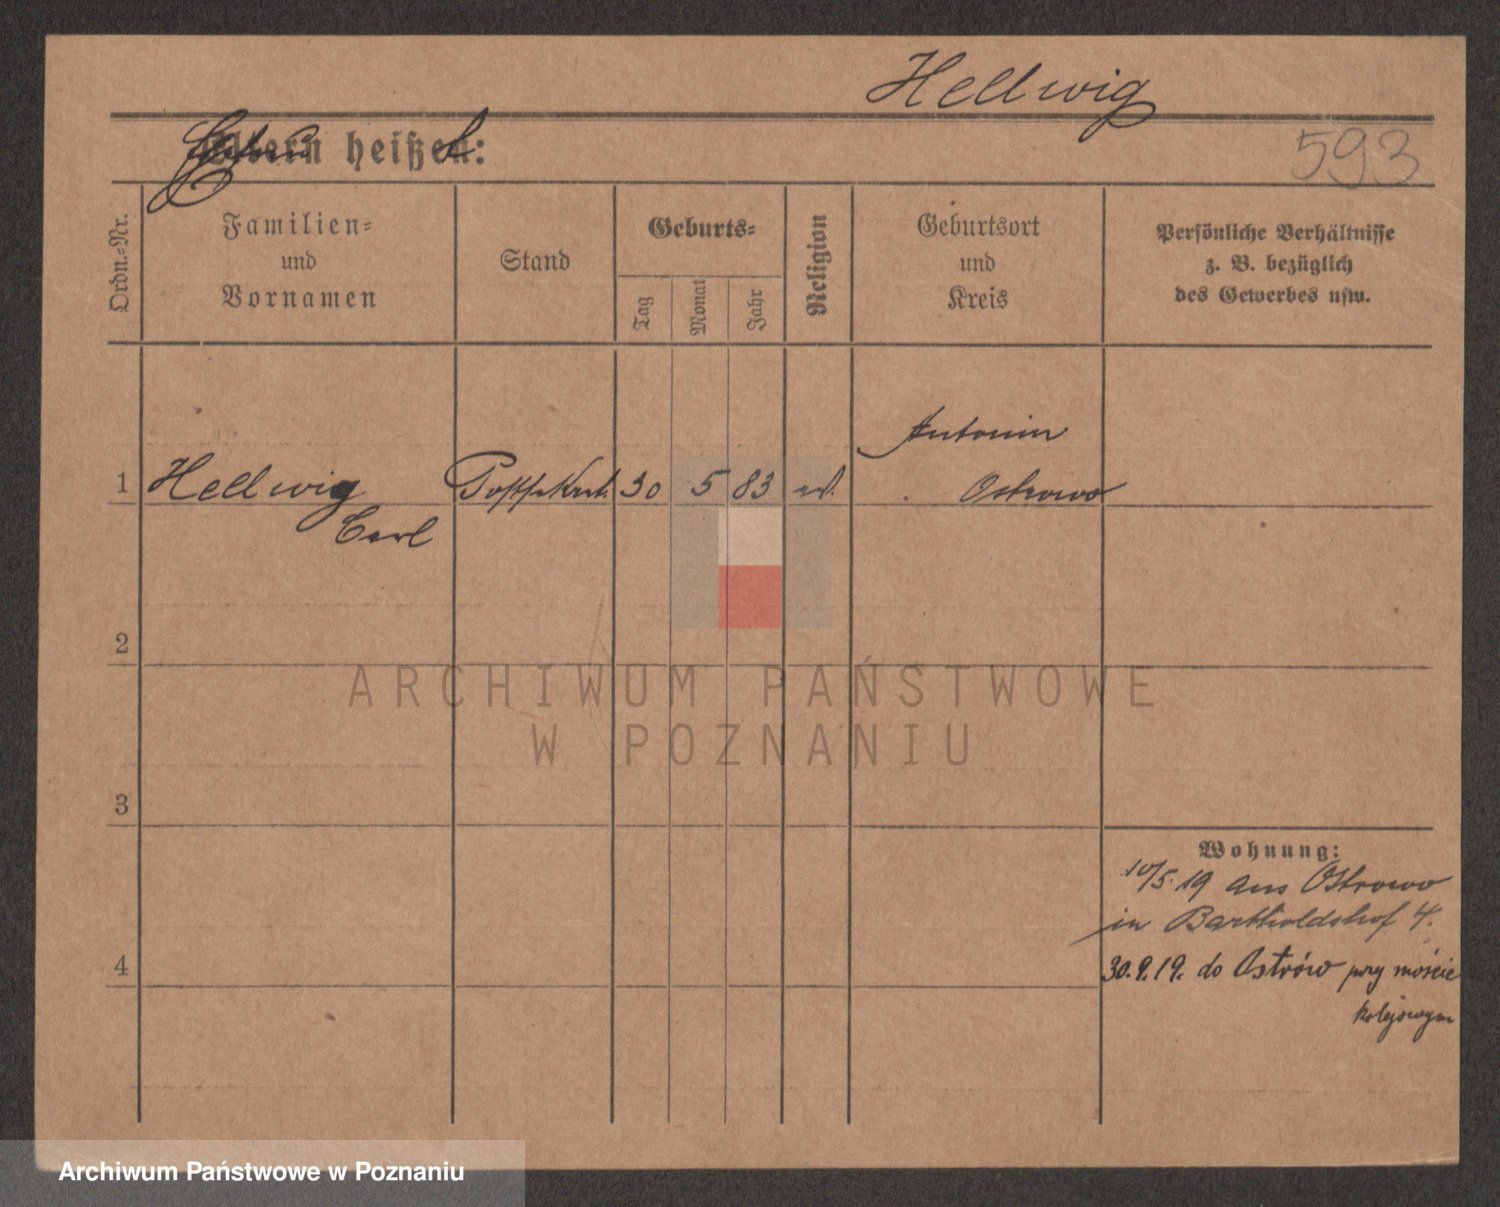 Hellwig
Eltern heißen:
593
Ordn.-Nr.
Familien-
und
Vornamen
Stand
Geburts-
Tag
Monat
Jahr
Religion
Geburtsort
und
Kreis
Persönliche Verhältnisse
z. B. bezüglich
des Gewerbes usw.
Antonin
1 Hellwig 30 5 83 Ostrowo
Carl
2
3
4
Wohnung:
10/5. 19 aus Ostrowo
in Bartholdshof 4.
30.9.19. do Ostrów przy moście
kolejowym
ARCHIWUM PAŃSTWOWE
W POZNANIU
Archiwum Państwowe w Poznaniu